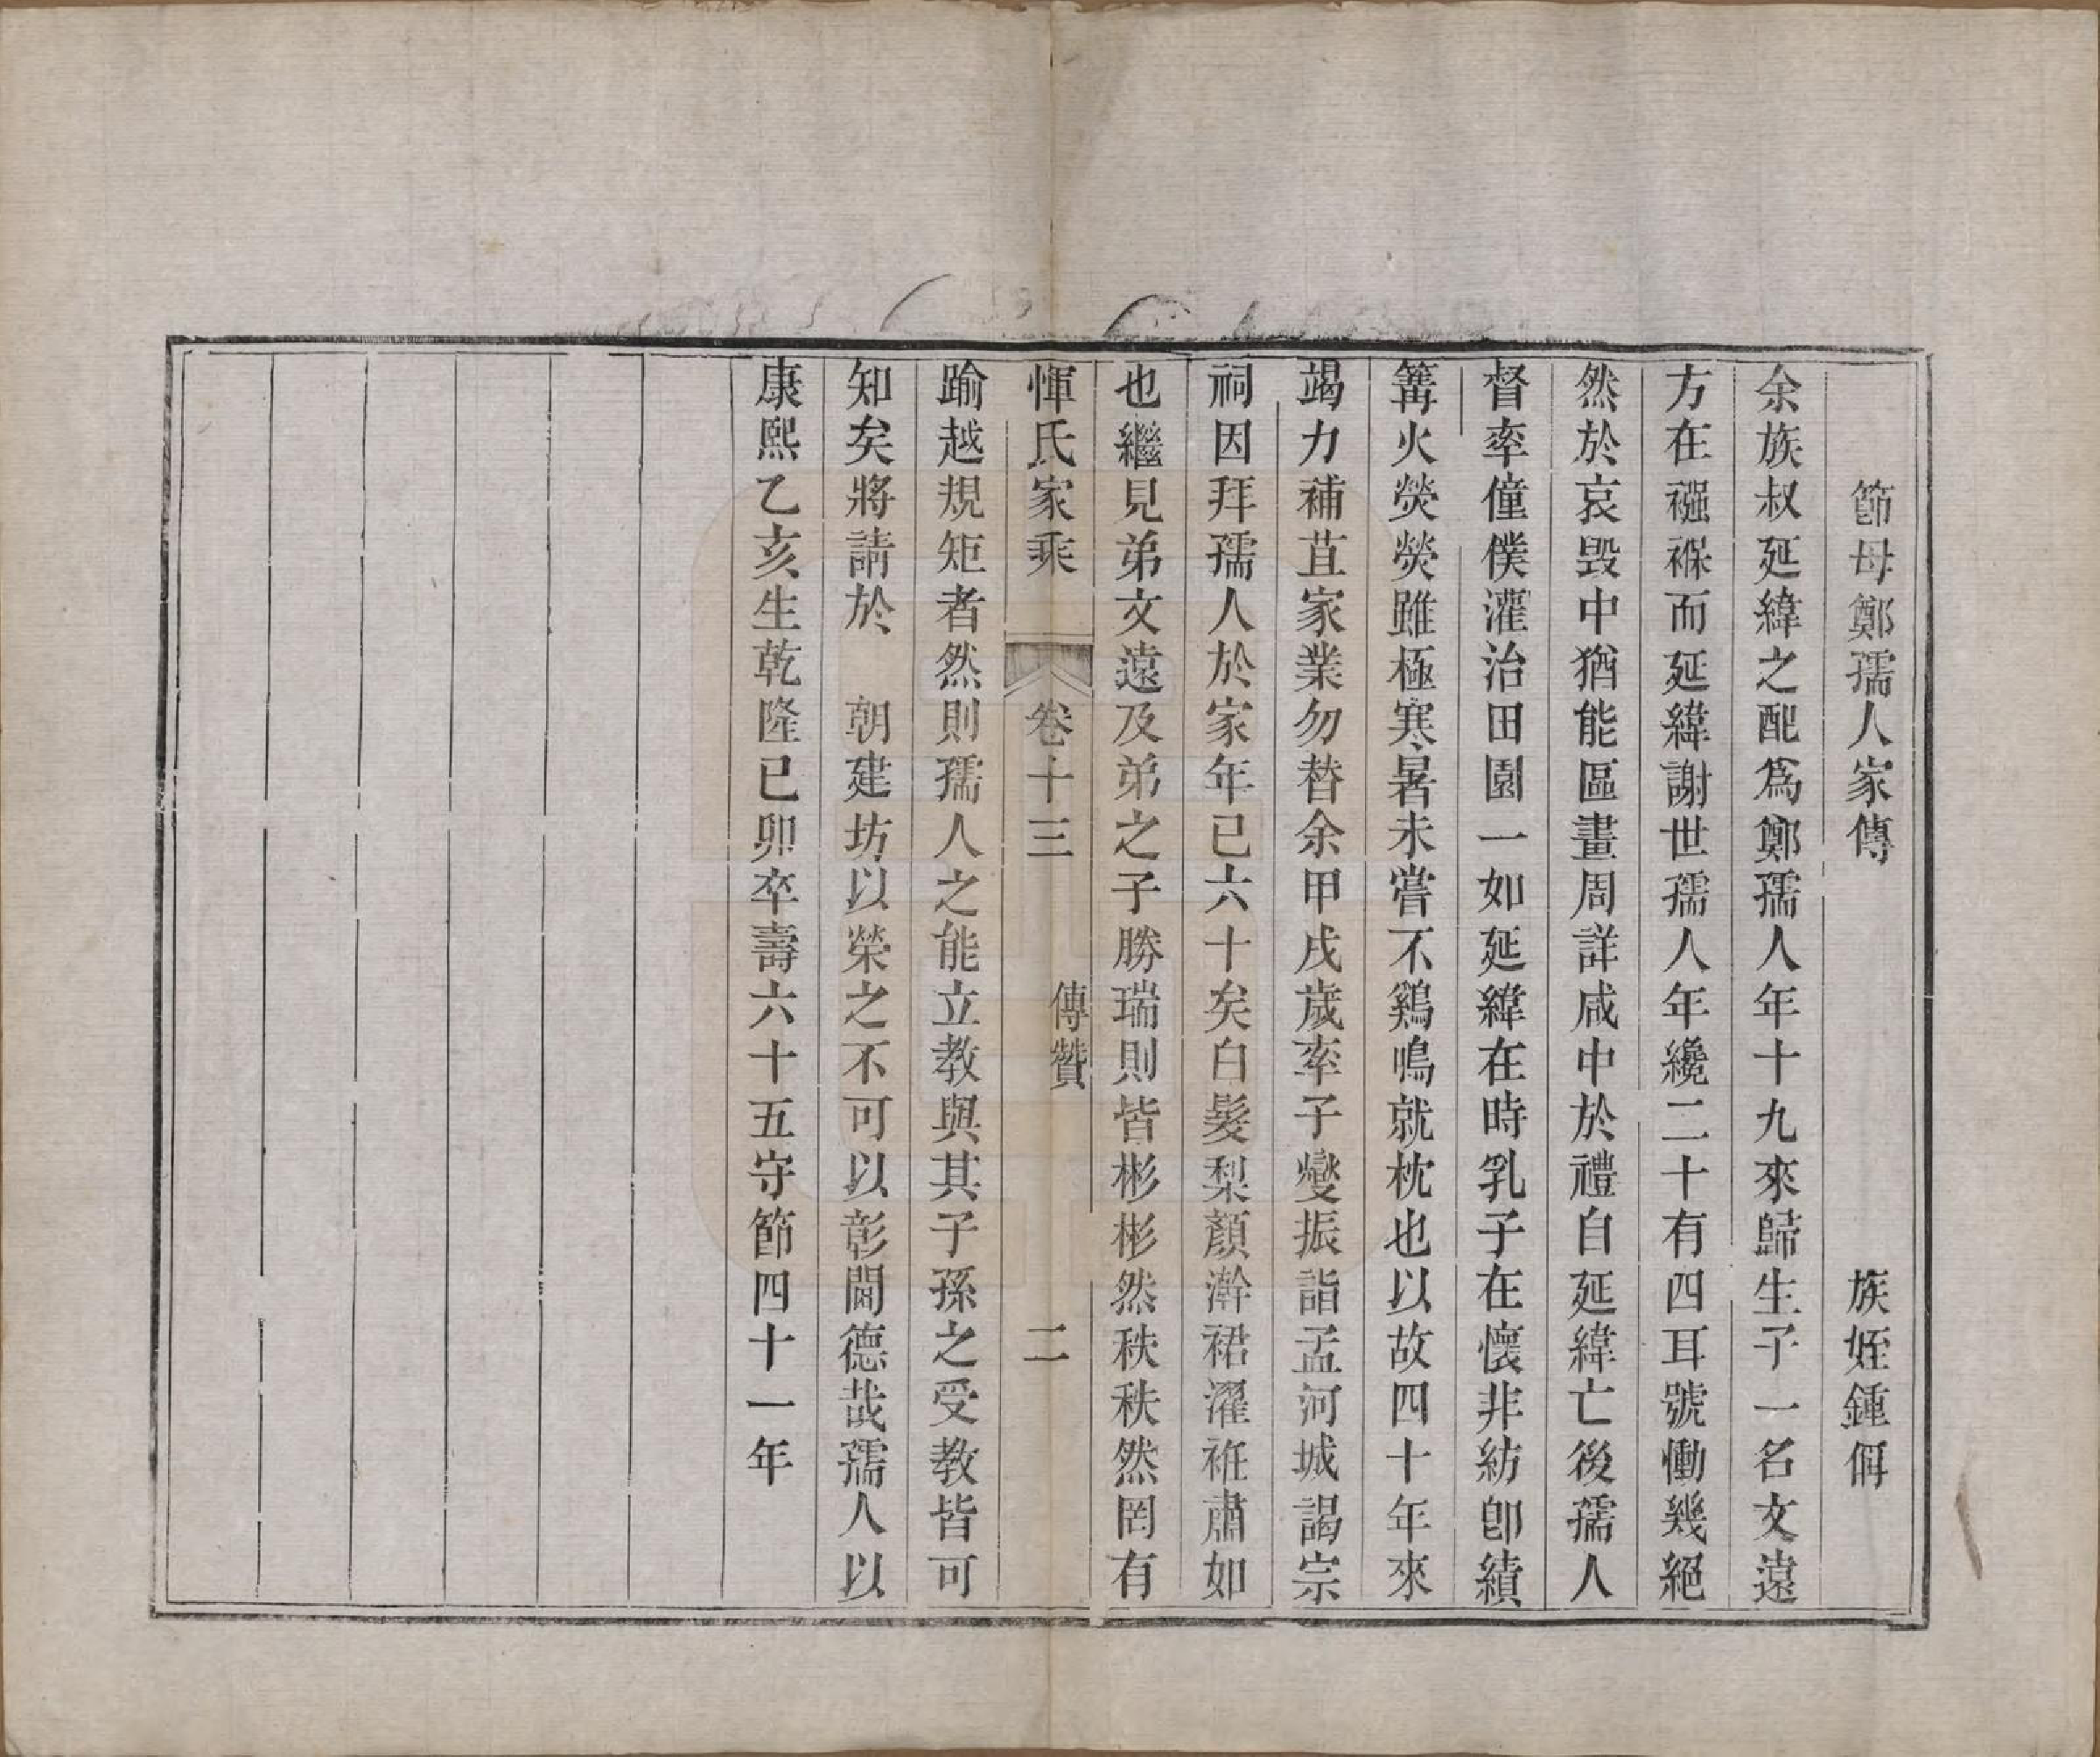 節母鄭孺人家傳　族姪鍾㑺
余族叔延緯之配爲鄭孺人年十九來歸生子一名文遠
方在襁褓而延緯謝世孺人年纔二十有四耳號慟幾絕
然於哀毀中猶能區畫周詳咸中於禮自延緯亡後孺人
督率僮僕灌治田園一如延緯在時乳子在懷非紡卽績
篝火熒熒雖極寒暑未嘗不鷄鳴就枕也以故四十年來
竭力補苴家業勿替余甲戌歲率子變振詣孟河城謁宗
祠因拜孺人於家年已六十矣白髮梨顏澣裙濯袵肅如
也繼見弟文遠及弟之子勝瑞則皆彬彬然秩秩然罔有
惲氏家乘　卷十三　傳贊　二
踰越規矩者然則孺人之能立教與其子孫之受教皆可
知矣將請於　朝建坊以榮之不可以彰閫德哉孺人以
康熙乙亥生乾隆已卯卒壽六十五守節四十一年